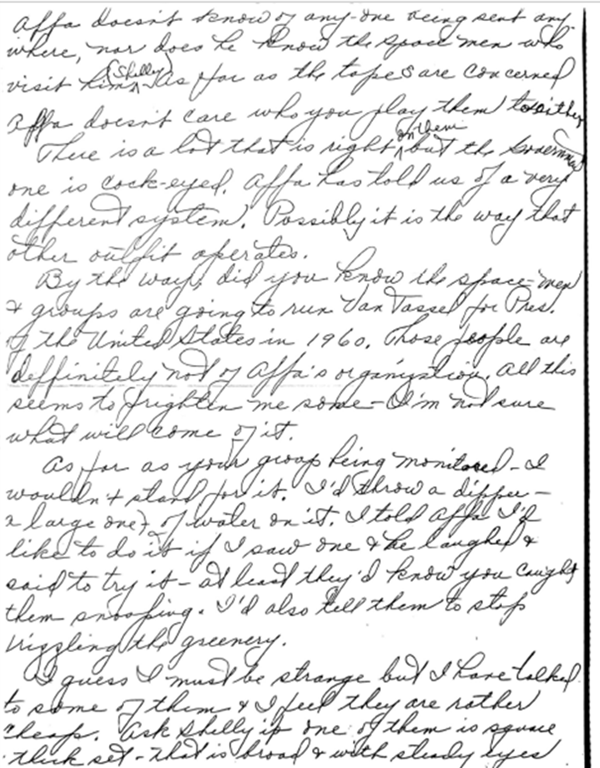 Affa doesn't know of any-one being sent any
where, nor does he know the space men who
visit him (Shelley). As far as the tapes are concerned
Affa doesn't care who you play them to either
There is a lot that is right on them but the Government
one is cock-eyed. Affa has told us of a very
different system. Possibly it is the way that
other outfit operates.
By the way, did you know the space-men
& groups are going to run Van Tassel for Pres.
of the United States in 1960. Those people are
deffinitely not of Affa's organization. All this
seems to frighten me some - I'm not sure
what will come of it.
As far as your group being monitored - I
wouldn't stand for it. I'd throw a dipper -
a large one, of water on it. I told Affa I'd
like to do it if I saw one & he laughed &
said to try it - at least they'd know you caught
them snooping. I'd also tell them to stop
frizzling the greenery.
I guess I must be strange but I have talked
to some of them & I feel they are rather
cheap. Ask Shelly if one of them is square
thick set - that is broad & with steady eyes